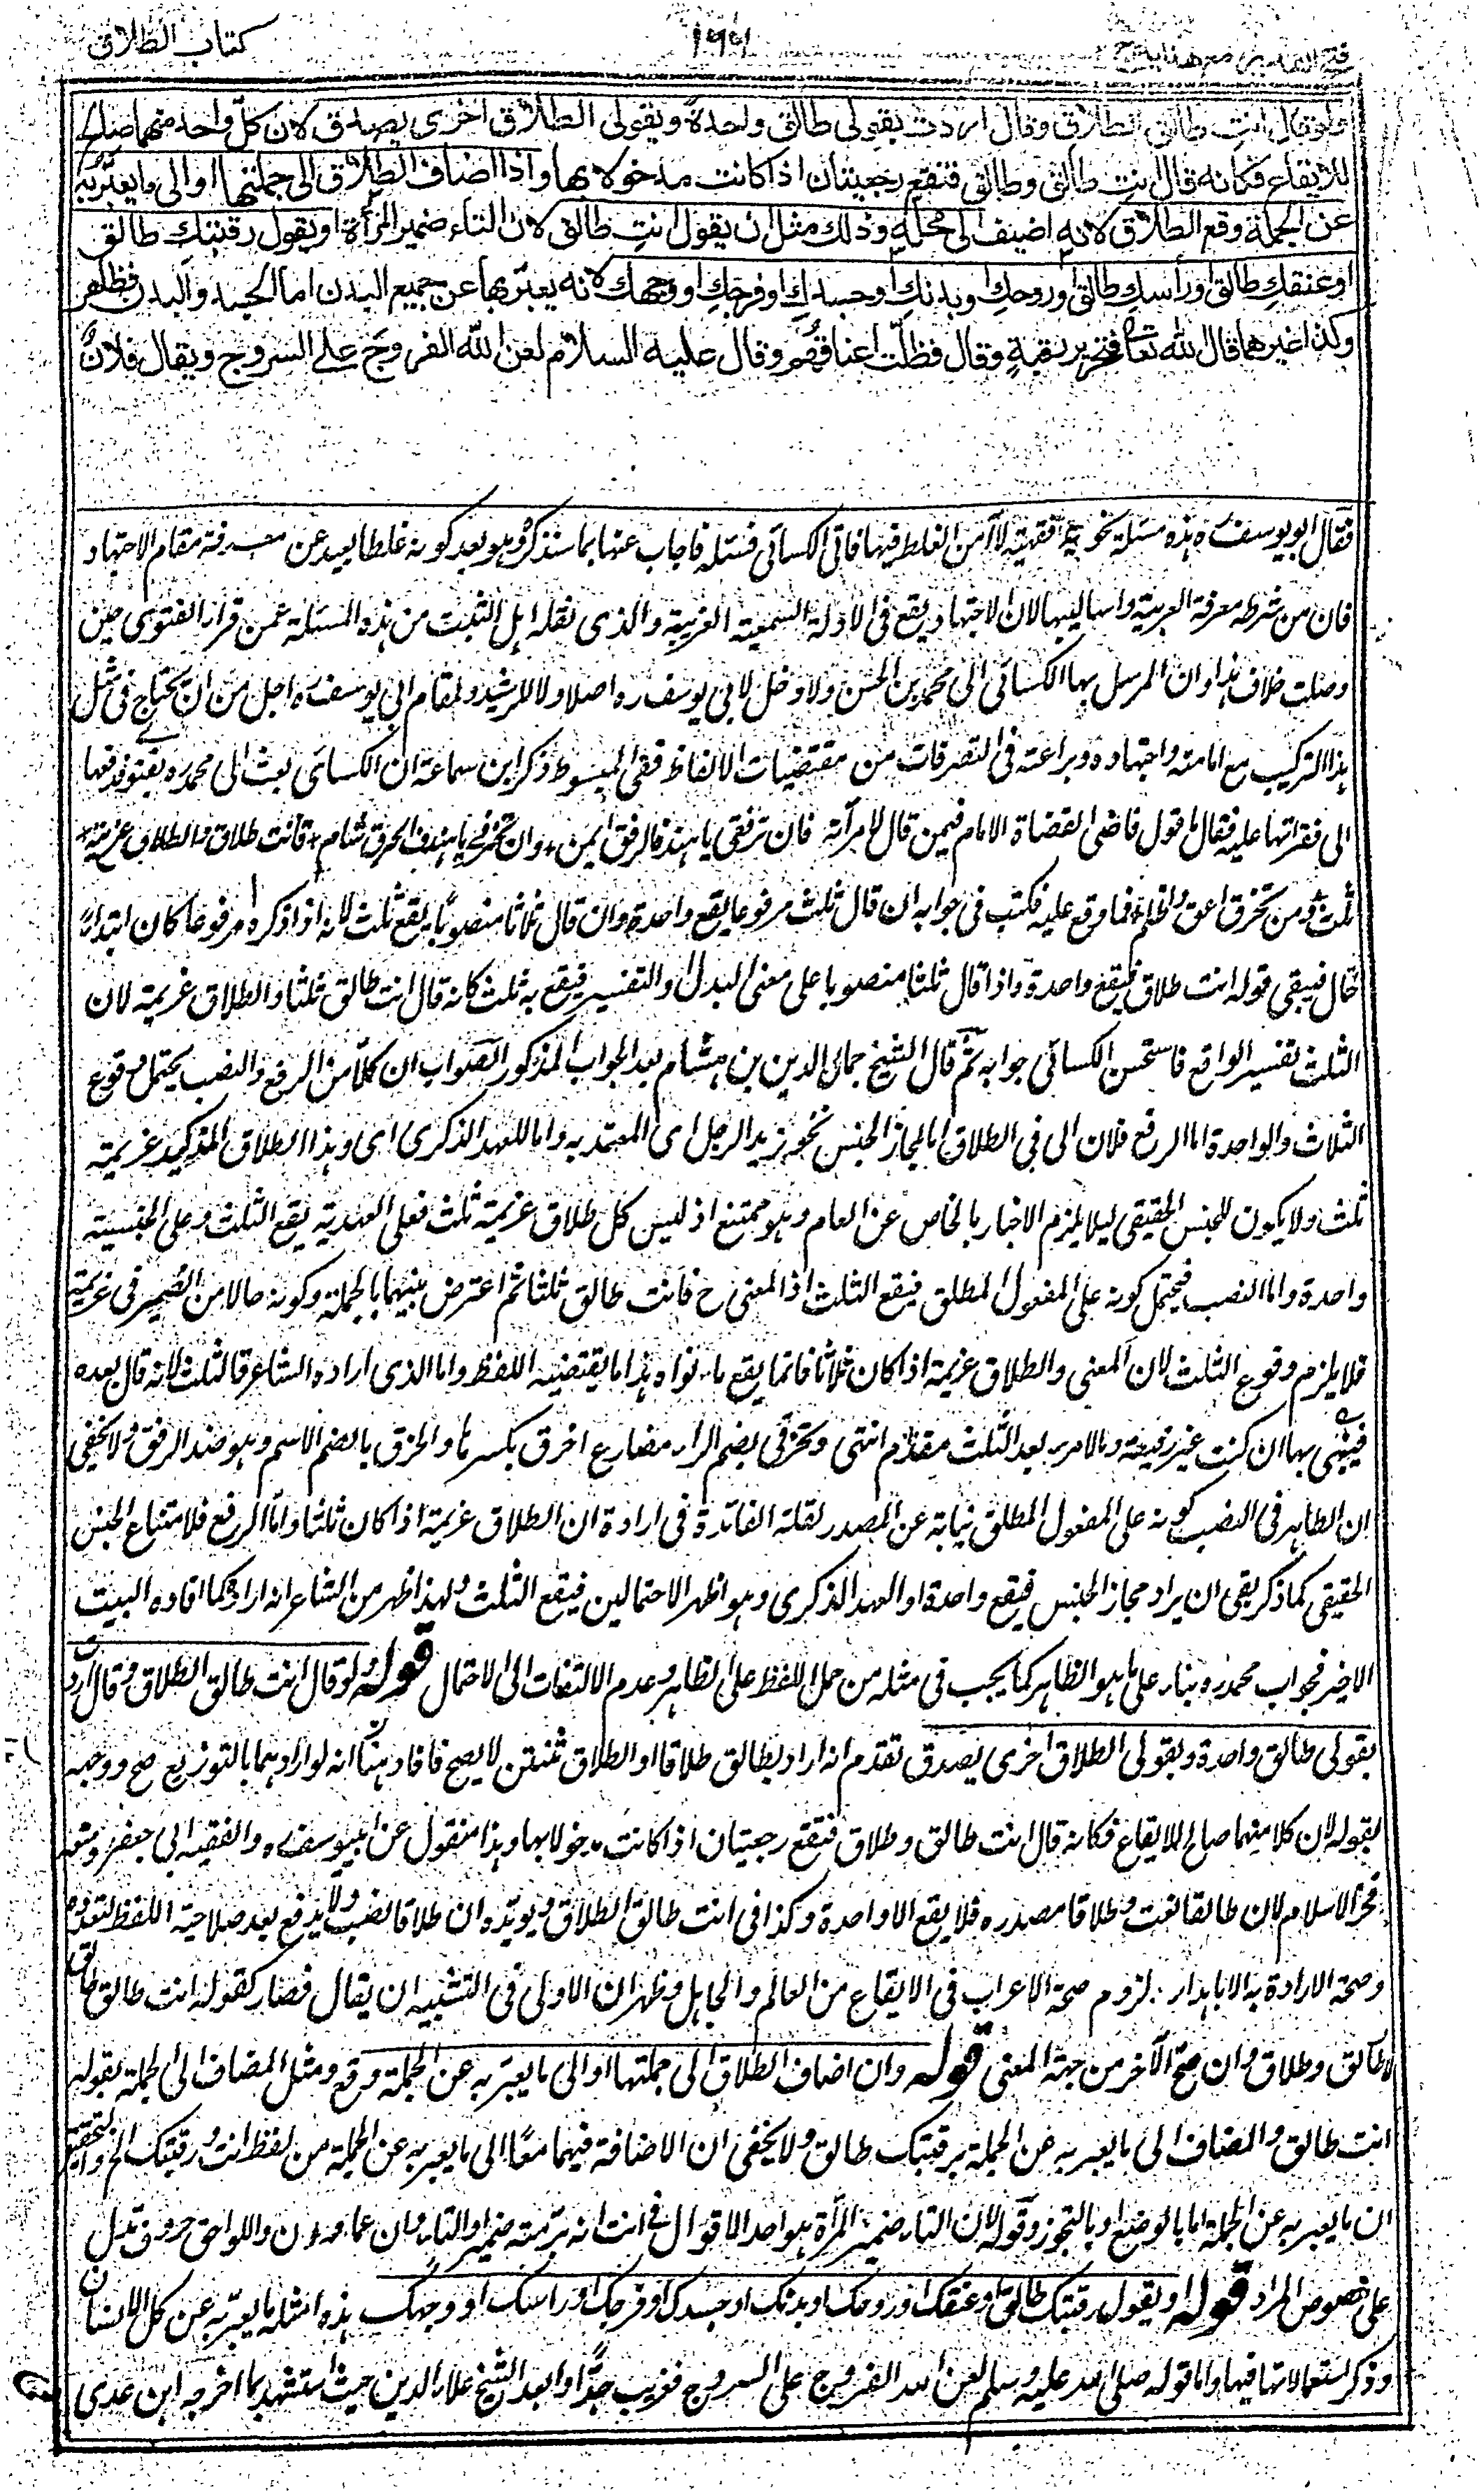 كتاب الطلاق
فتح القدير مع هداية ج ٢
ولو قال انتِ طالق الطلاق وقال اردت بقولى طالق واحدةً وبقولى الطلاق اخرى يصدق لان كلّ واحد منهما صالح
للايقاع فكانه قال انتِ طالق وطالق فتقع رجعيتان اذا كانت مدخولا بها واذا اضاف الطلاق الى جملتها او الى ما يعبّر به
عن الجملة وقع الطلاق لانه اضيف الى محله وذلك مثل ان يقول انتِ طالق لان التاء ضمير المرأة او يقول رقبتك طالق
او عنقكِ طالق او رأسكِ طالق او روحكِ او بدنكِ او جسدكِ او فرجكِ او وجهك لانه يعبّر بها عن جميع البدن اما الجسد والبدن فظاهر
وكذا غيرهما قال الله تعالى فتحرير رقبةٍ وقال فظلّت اعناقهم وقال عليه السلام لعن الله الفروج على السروج ويقال فلانٌ
فقال ابو يوسف ره هذه مسئلة نحوية فقهية لا آمن الغلط فيها فاتى الكسائى فسئله فاجاب عنها بما سنذكره وهو بعد كونه غلطا بعيد عن معرفة مقام الاجتهاد
فان من شرطه معرفة العربية واساليبها لان الاجتهاد يقع فى الادلة السمعية العربية والذى نقله اهل الثبت من هذه المسئلة عمن قرا الفتوى حين
وصلت خلاف هذا وان المرسل بها الكسائى الى محمد بن الحسن ولا دخل لابى يوسف ره اصلا ولا للرشيد ولمقام ابى يوسف ره اجل من ان يحتاج فى مثل
هذا التركيب مع امامته واجتهاده وبراعته فى التصرفات من مقتضيات الالفاظ ففى المبسوط ذكر ابن سماعة ان الكسائى بعث الى محمد ره بفتوى فدفعها
الى فقراتها عليه فقال ما قول قاضى القضاة الامام فيمن قال لامرأته فان ترفقى يا هند فالرفق ايمن + وان تخرقى يا هند فالخرق اشام + فانت طلاق والطلاق عزيمة +
ثلث ومن تخرق اعق واظلم + فما وقع عليه فكتب فى جوابه ان قال ثلث مرفوعا يقع واحدة وان قال ثلاثا منصوبا يقع ثلث لانه اذا ذكره مرفوعا كان ابتداءً
حال فيبقى قوله انت طلاق فيقع واحدة واذا قال ثلثا منصوبا على معنى البدل او التفسير فيقع به ثلث كانه قال انت طالق ثلثا والطلاق عزيمة لان
الثلث تفسير الواقع فاستحسن الكسائى جوابه ثم قال الشيخ جمال الدين بن هشام بعد الجواب المذكور الصواب ان كلا من الرفع والنصب يحتمل وقوع
الثلاث والواحدة اما الرفع فلان ال فى الطلاق اما لمجاز الجنس نحو زيد الرجل اى المعتد به واما للعهد الذكرى اى وهذا الطلاق المذكور عزيمة
ثلث ولا يكون للجنس الحقيقى ليلا يلزم الاخبار بالخاص عن العام وهو ممتنع اذ ليس كل طلاق عزيمة ثلث فعلى العهدية يقع الثلث وعلى الجنسية
واحدة واما النصب فيحتمل كونه على المفعول المطلق فيقع الثلث اذ المعنى ح فانت طالق ثلثا ثم اعترض بينهما بالجملة وكونه حالا من الضمير فى عزيمة
فلا يلزم وقوع الثلث لان المعنى والطلاق عزيمة اذا كان ثلاثا فانما يقع ما نواه هذا ما يقتضيه اللفظ واما الذى اراده الشاعر فالثلث لانه قال بعده
فبينى بها ان كنت غير رفيقة وما لامرء بعد الثلث مقدم انتهى وتخرقى بضم الراء مضارع اخرق بكسرها والخرق بالضم الاسم وهو ضد الرفق ولا يخفى
ان الظاهر فى النصب كونه على المفعول المطلق نيابة عن المصدر لقلة الفائدة فى ارادة ان الطلاق عزيمة اذا كان ثلثا واما الرفع فلامتناع الجنس
الحقيقى كما ذكر بقى ان يراد مجاز الجنس فيقع واحدة او العهد الذكرى وهو اظهر الاحتمالين فيقع الثلث ولهذا ظهر من الشاعر انه اراده كما افاده البيت
الاخير فجواب محمد ره بناء على ما هو الظاهر كما يجب فى مثله من حمل اللفظ على الظاهر وعدم الالتفات الى الاحتمال قوله ولو قال انت طالق الطلاق وقال اردت
بقولى طالق واحدة وبقولى الطلاق اخرى يصدق تقدم انه اراد بطالق طلاقا او الطلاق ثنتين لا يصح فافاد هنا انه لو ارادهما بالتوزيع صح ووجهه
بقوله لان كلا منهما صالح للايقاع فكانه قال انت طالق وطلاق فتقع رجعيتان اذا كانت مدخولا بها وهذا منقول عن ابيوسف ره والفقيه ابى جعفر ومنعه
فخر الاسلام لان طالقا نعت وطلاقا مصدره فلا يقع الا واحدة وكذا فى انت طالق الطلاق ويويّده ان طلاقا نصب ولا يرفع بعد صلاحية اللفظ لتعدده
وصحة الارادة به الا باهدار لزوم صحة الاعراب فى الايقاع من العالم والجاهل وظهر ان الاولى فى التشبيه ان يقال فصار كقوله انت طالق طالق
لا طالق وطلاق وان صح الآخر من جهة المعنى قوله وان اضاف الطلاق الى جملتها او الى ما يعبّر به عن الجملة وقع ومثل المضاف الى الجملة بقوله
انت طالق والمضاف الى ما يعبر به عن الجملة برقبتك طالق ولا يخفى ان الاضافة فيهما معًا الى ما يعبر به عن الجملة من لفظ انت ورقبتك الخ والتحقيق
ان ما يعبر به عن الجملة اما بالوضع او بالتجوز وقوله لان التاء ضمير المرأة هو احد الاقوال فى انت انه برمته ضمير او التاء وان عماد او ان واللواحق حروف تدل
على خصوص المراد قوله او يقول رقبتك طالق او عنقك او روحك او بدنك او جسدك او فرجك او راسك او وجهك هذه امثلة ما يعبّر به عن كل الانسان
وذكر استعمالاتها فيها واما قوله صلى الله عليه وسلم لعن الله الفروج على السروج فغريب جدًا وابعد الشيخ علاء الدين حيث استشهد بما اخرجه ابن عدى